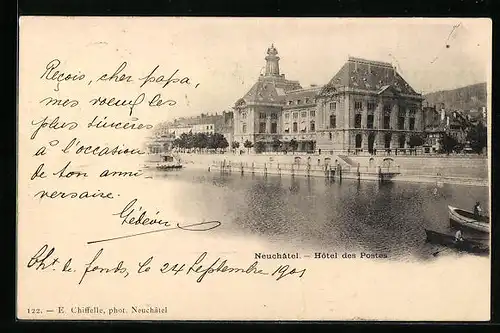 Reçois, cher papa,
mes voeux les
plus sincères
à l'occasion
de ton anni-
versaire.
Gédéon
Neuchâtel. – Hôtel des Postes
Cht. de fonds, le 24 Septembre 1901
122. — E. Chiffelle, phot. Neuchâtel